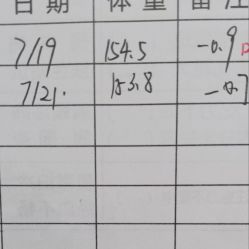 日期 体重 备注
7/19 154.5 -0.9
7/21. 153.8 -0.7